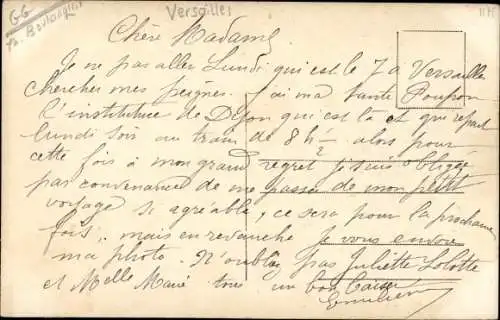 Versailles
GG
Chère Madame
Je ne pas aller Lundi qui est le 7 a Versailles
chercher mes peignes. j'ai ma tante Poupon
l'institutrice de Dijon qui est là et qui repart
lundi soir au train de 8h— alors pour
cette fois à mon grand regret je suis obligée
par convenance de me passer de mon petit
voyage si agréable, ce sera pour la prochaine
fois. mais en revanche je vous envoie
ma photo. N'oubliez pas Juliette Lolotte
et Melle Marie tous un bon baiser